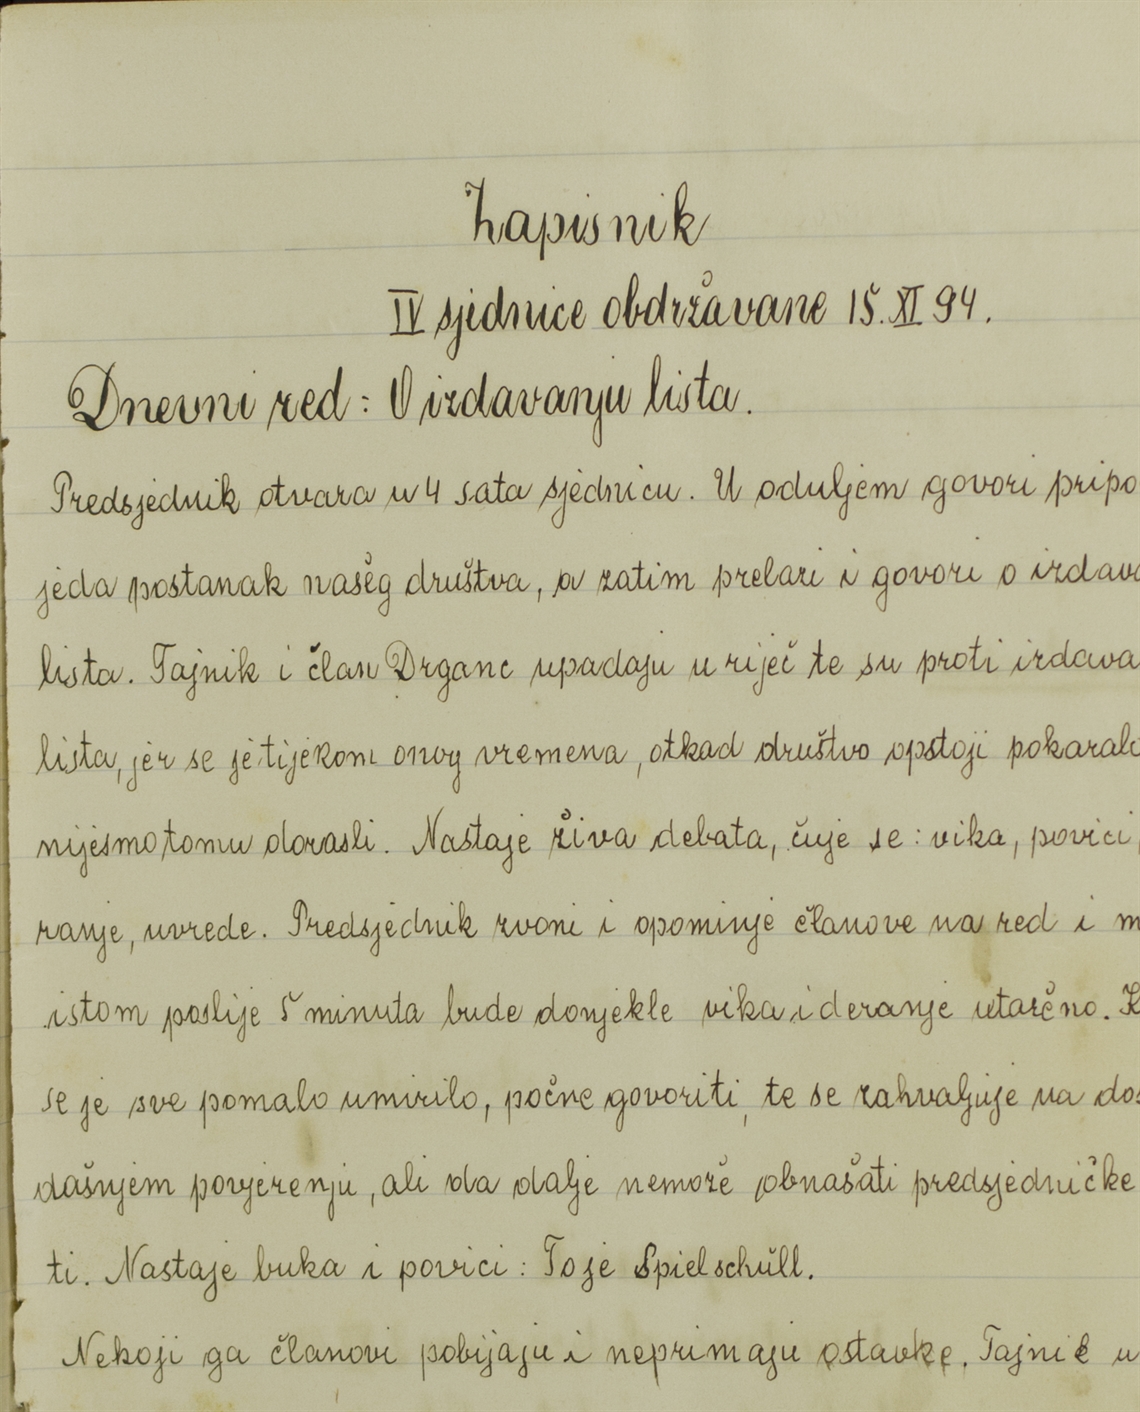 Zapisnik
IV sjednice obdržavane 15. XI 94.
Dnevni red: O izdavanju lista.
Predsjednik otvara u 4 sata sjednicu. U oduljem govori pripo
jeda postanak našeg društva, a zatim prelazi i govori o izdava
lista. Tajnik i član Drganc upadaju u riječ te su proti izdava
lista, jer se je tijekom onog vremena, otkad društvo opstoji pokazalo
nijesmo tomu dorasli. Nastaje živa debata, čuje se: vika, povici,
ranje, uvrede. Predsjednik zvoni i opominje članove na red i m
istom poslije 5 minuta bude donjekle vika i deranje utarčno. K
se je sve pomalo umirilo, počne govoriti, te se zahvaljuje na dos
dašnjem povjerenju, ali da dalje nemože obnašati predsjedničke
ti. Nastaje buka i povici: To je Spielschüll.
Nekoji ga članovi pobijaju i neprimaju ostavke. Tajnik u